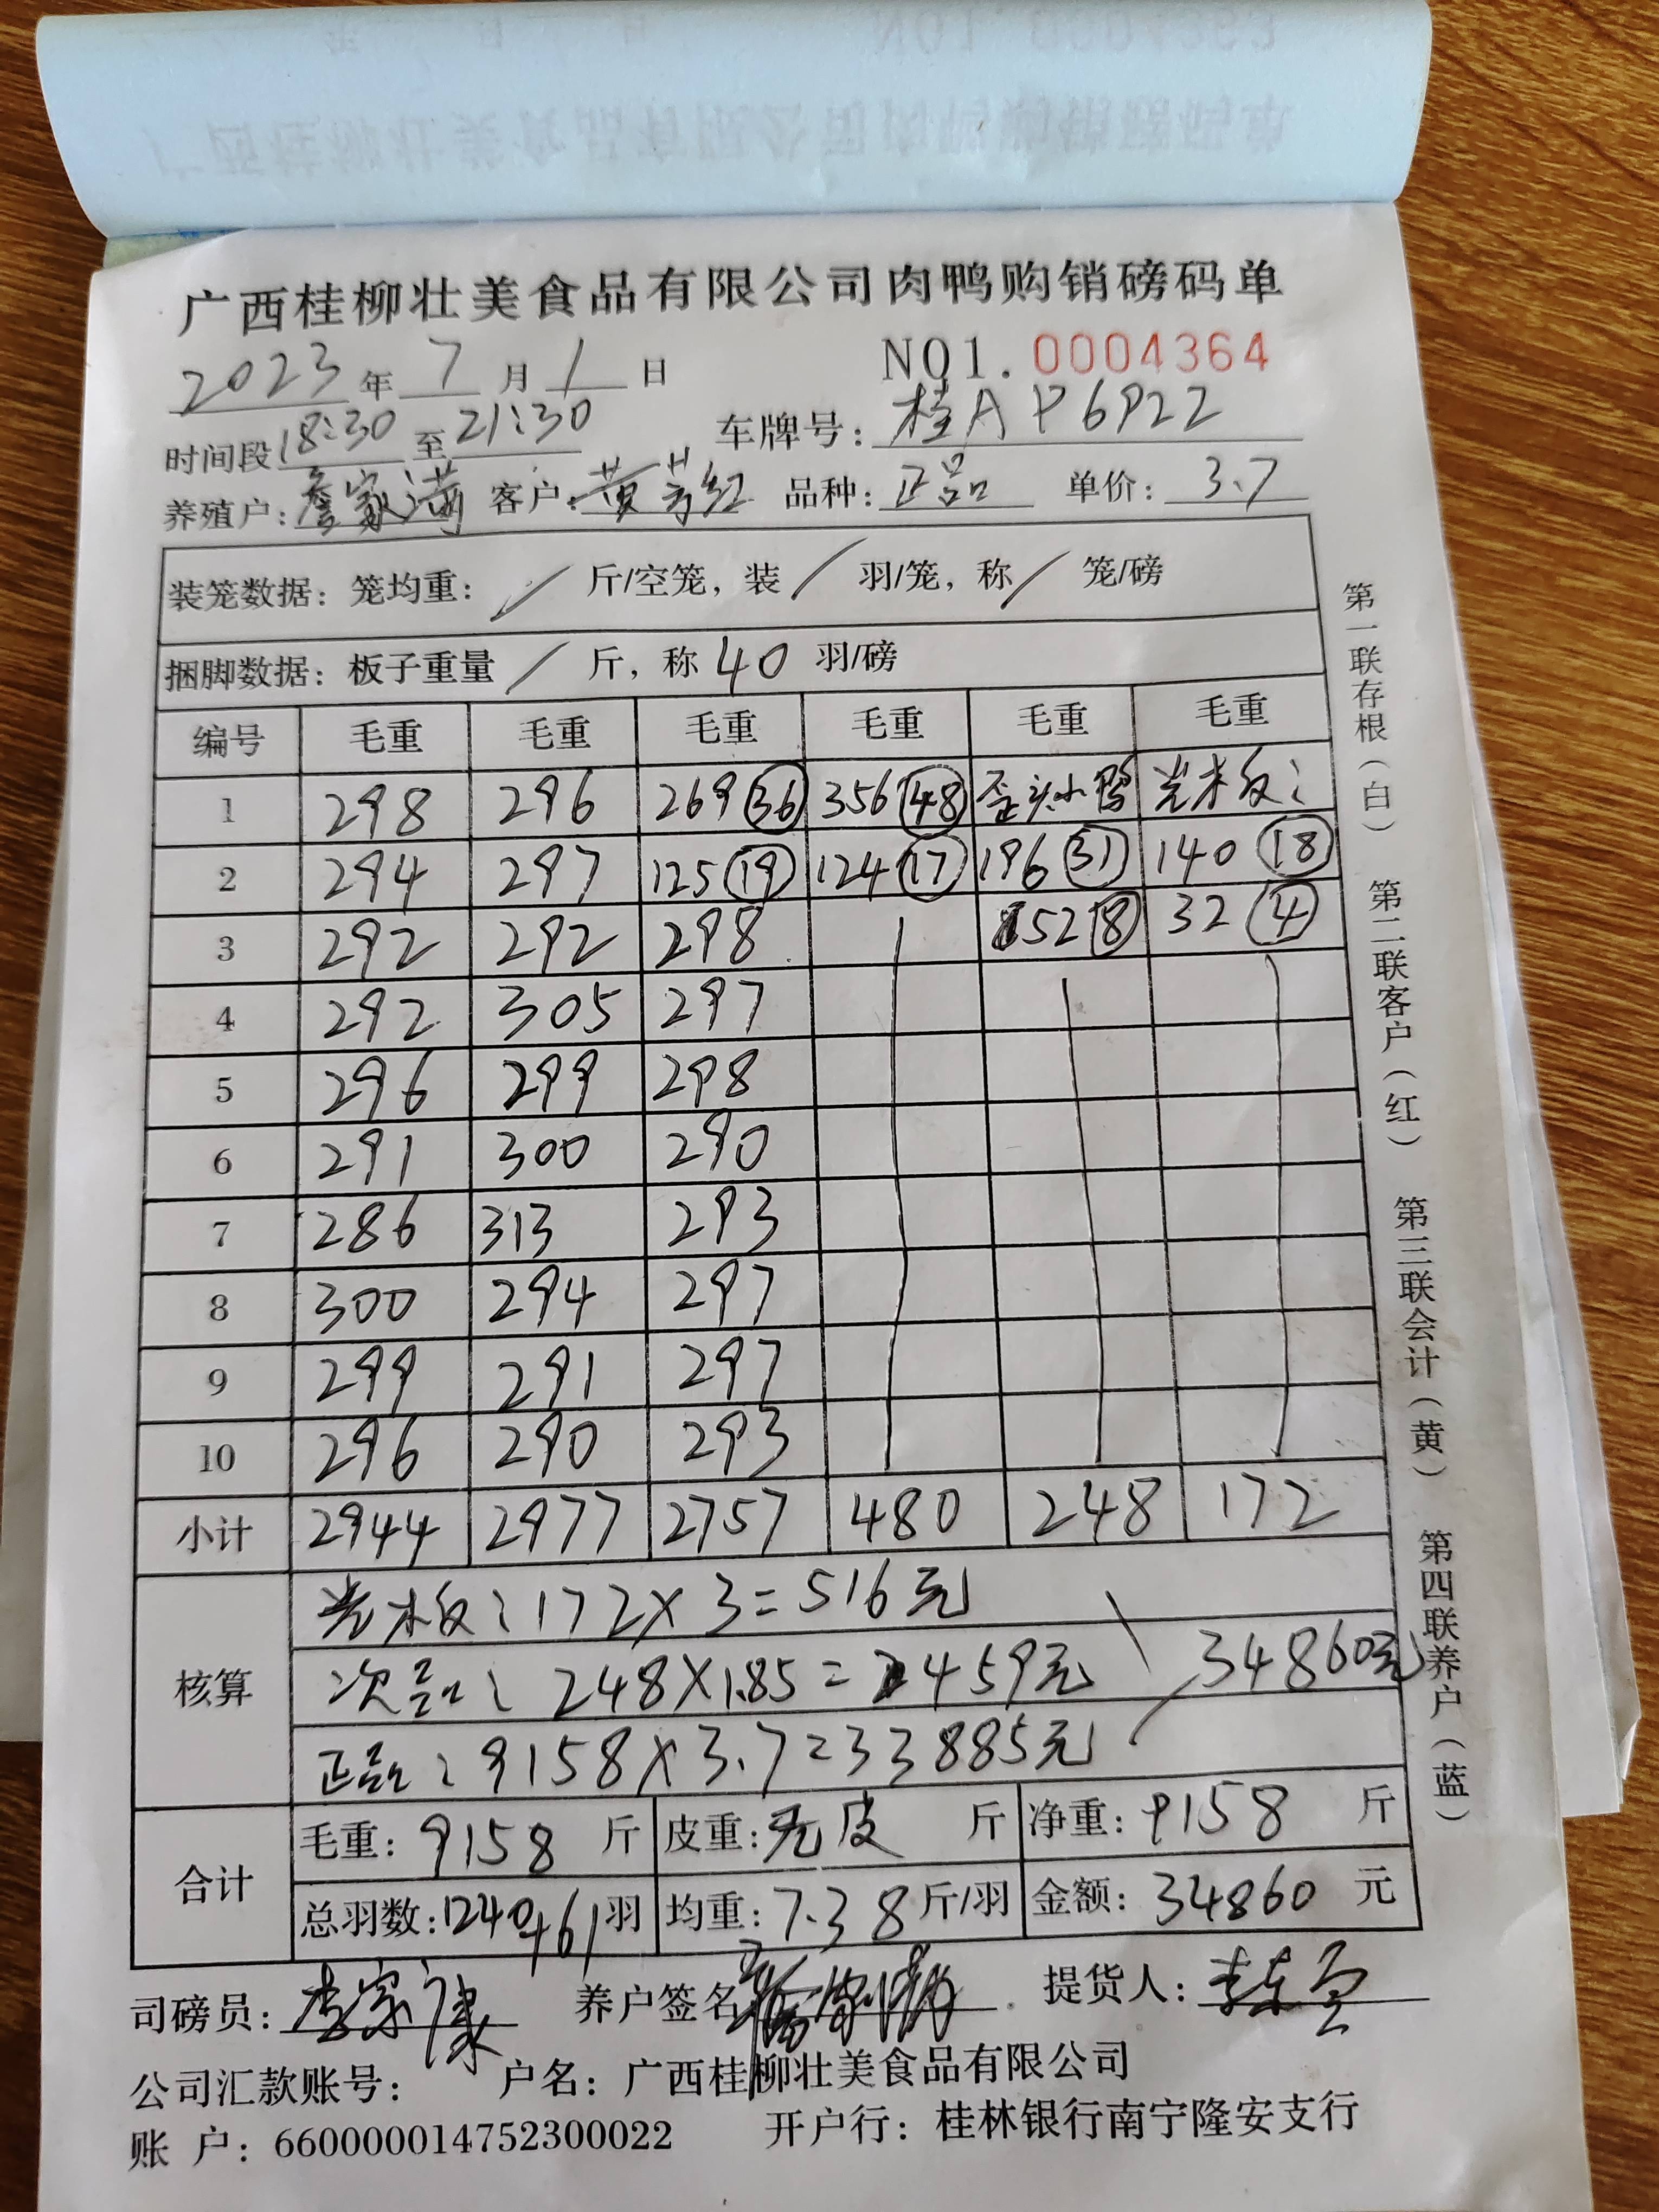 广西桂柳壮美食品有限公司肉鸭购销磅码单
NO1.0004364
2023年7月1日
时间段18:30至21:30 车牌号:桂AP6P22
养殖户:詹家满 客户:黄芳红 品种:正品 单价:3.7
装笼数据:笼均重: / 斤/空笼,装 / 羽/笼,称 / 笼/磅
捆脚数据:板子重量 / 斤,称40羽/磅
编号 毛重 毛重 毛重 毛重 毛重 毛重
1 298 296 269(36) 356(48) 歪头小鸭 光木板:
2 294 297 125(19) 124(17) 196(31) 140(18)
3 292 292 298 52(8) 32(4)
4 292 305 297
5 296 299 298
6 291 300 290
7 286 313 293
8 300 294 297
9 299 291 297
10 296 290 293
小计 2944 2977 2757 480 248 172
核算
光木板:172×3=516元
次品:248×1.85=459元
34860元
正品:9158×3.7=33885元
合计
毛重:9158斤 皮重:无皮斤 净重:9158斤
总羽数:1240+61羽 均重:7.38斤/羽 金额:34860元
司磅员:李家康 养户签名 提货人:
公司汇款账号: 户名:广西桂柳壮美食品有限公司
账 户:660000014752300022 开户行:桂林银行南宁隆安支行
第一联存根(白) 第二联客户(红) 第三联会计(黄) 第四联养户(蓝)